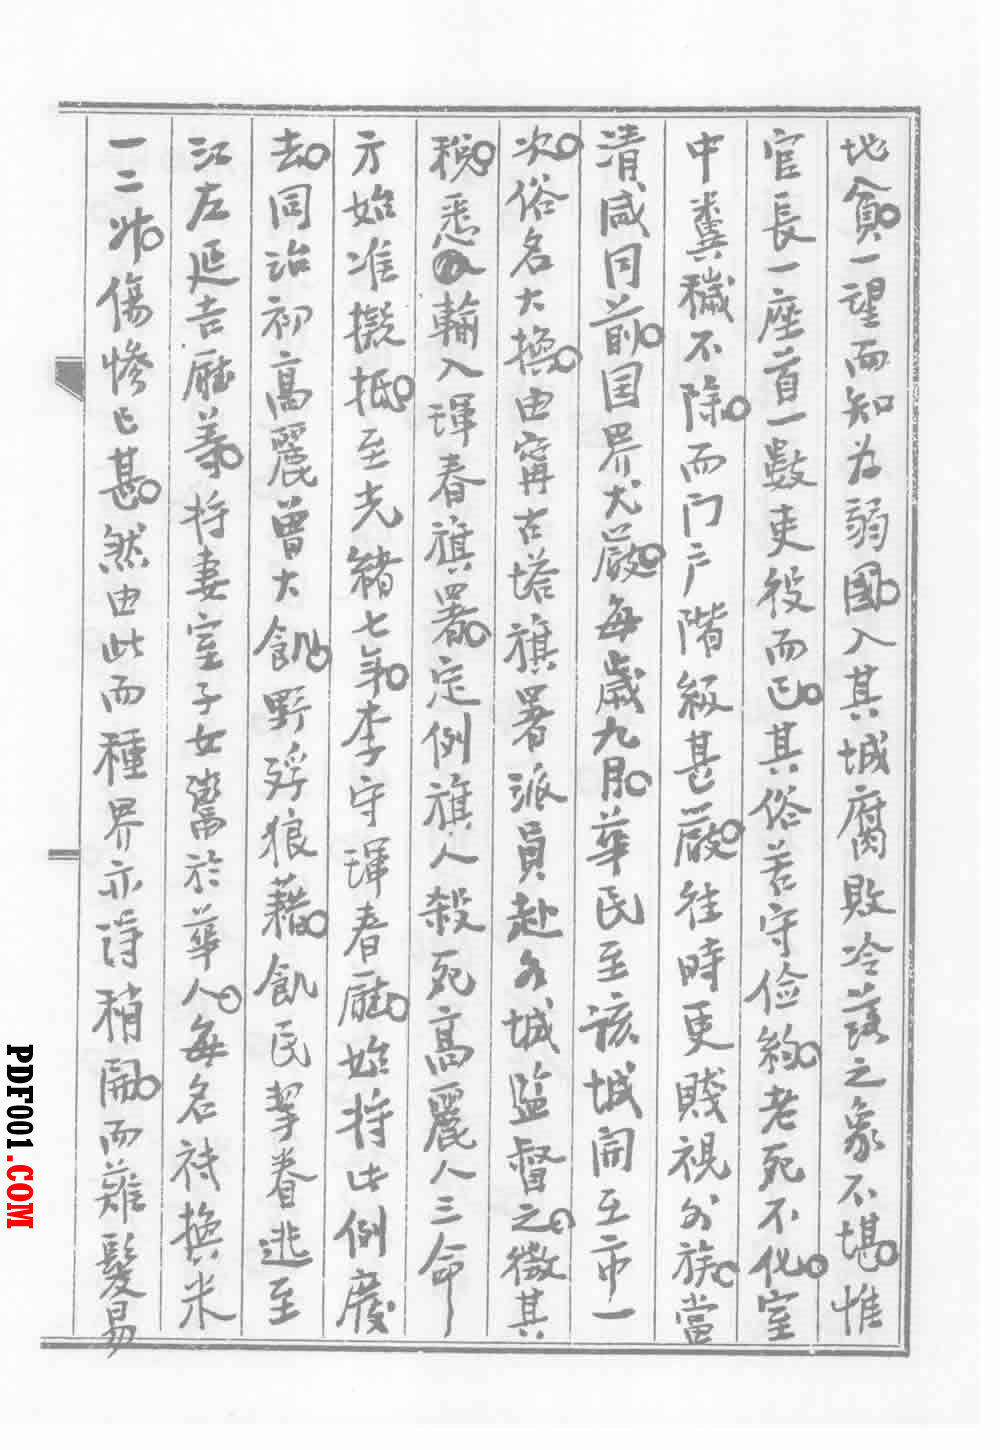 地貧。一望而知为弱國。入其城腐敗冷落之象不堪。惟
官長一座首一數吏役而已。其俗苦守俭約。老死不化。室
中糞穢不除。而门户階級甚嚴。往時更賤視外族。當
清咸同前。国界尤嚴。每歲九月。華民至该城開互市一
次。俗名大換。由甯古塔旗署派員赴外城監督之。徵其
稅。悉輸入琿春旗署。定例旗人殺死高麗人三命
方始准擬抵。至光緒七年。李守琿春廳。始将此例廢
去。同治初高麗曾大飢。野殍狼藉。飢民挈眷逃至
江左延吉廳等。将妻室子女鬻於華人。每名祗換米
一二斗。傷惨已甚。然由此而種界亦得稍開。而薙髮易
PDF001.COM